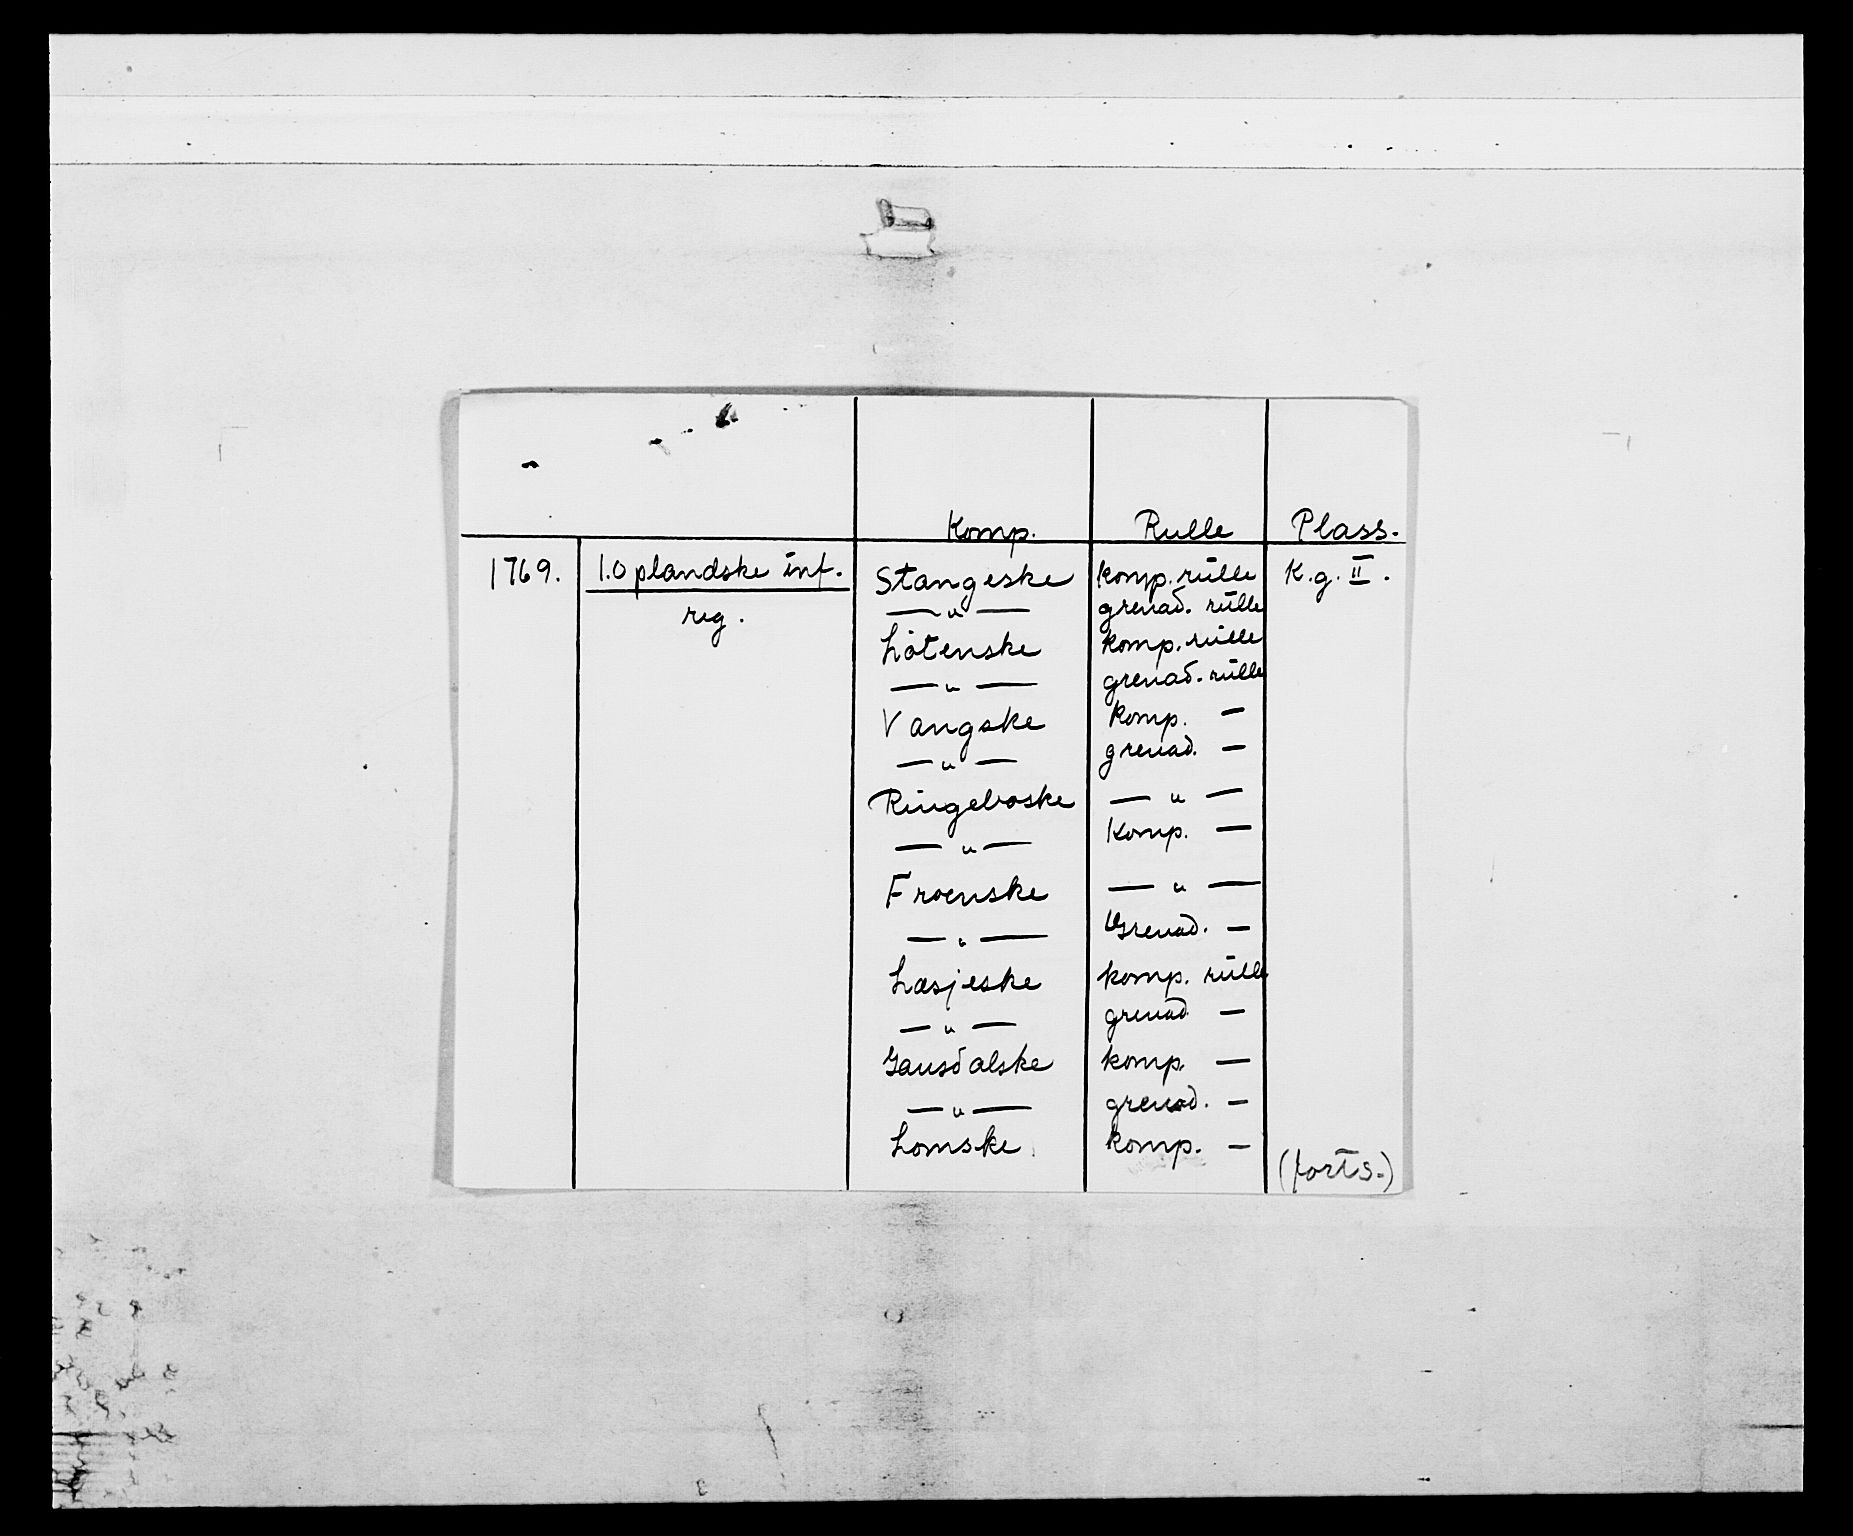 Komp. Rulle Plass.
1769. 1. Oplandske inf. Stangeske komp. rulle K.g. II.
reg. — " — grenad. rulle
Løtenske komp. rulle
— " — grenad. rulle
Vangske komp. —
— " — grenad. —
Ringeboske — " —
— " — Komp. —
Froenske — " —
— " — Grenad. —
Læsjeske komp. rulle
— " — grenad —
Gausdalske komp. —
— " — grenad. —
Lomske komp. —
(forts.)